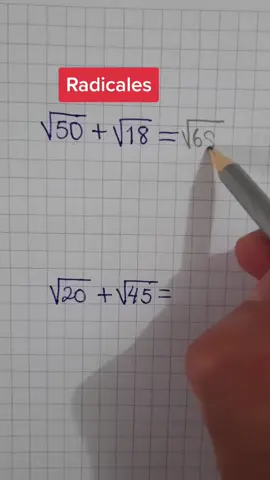 Radicales
√50 + √18 = √68
√20 + √45 =